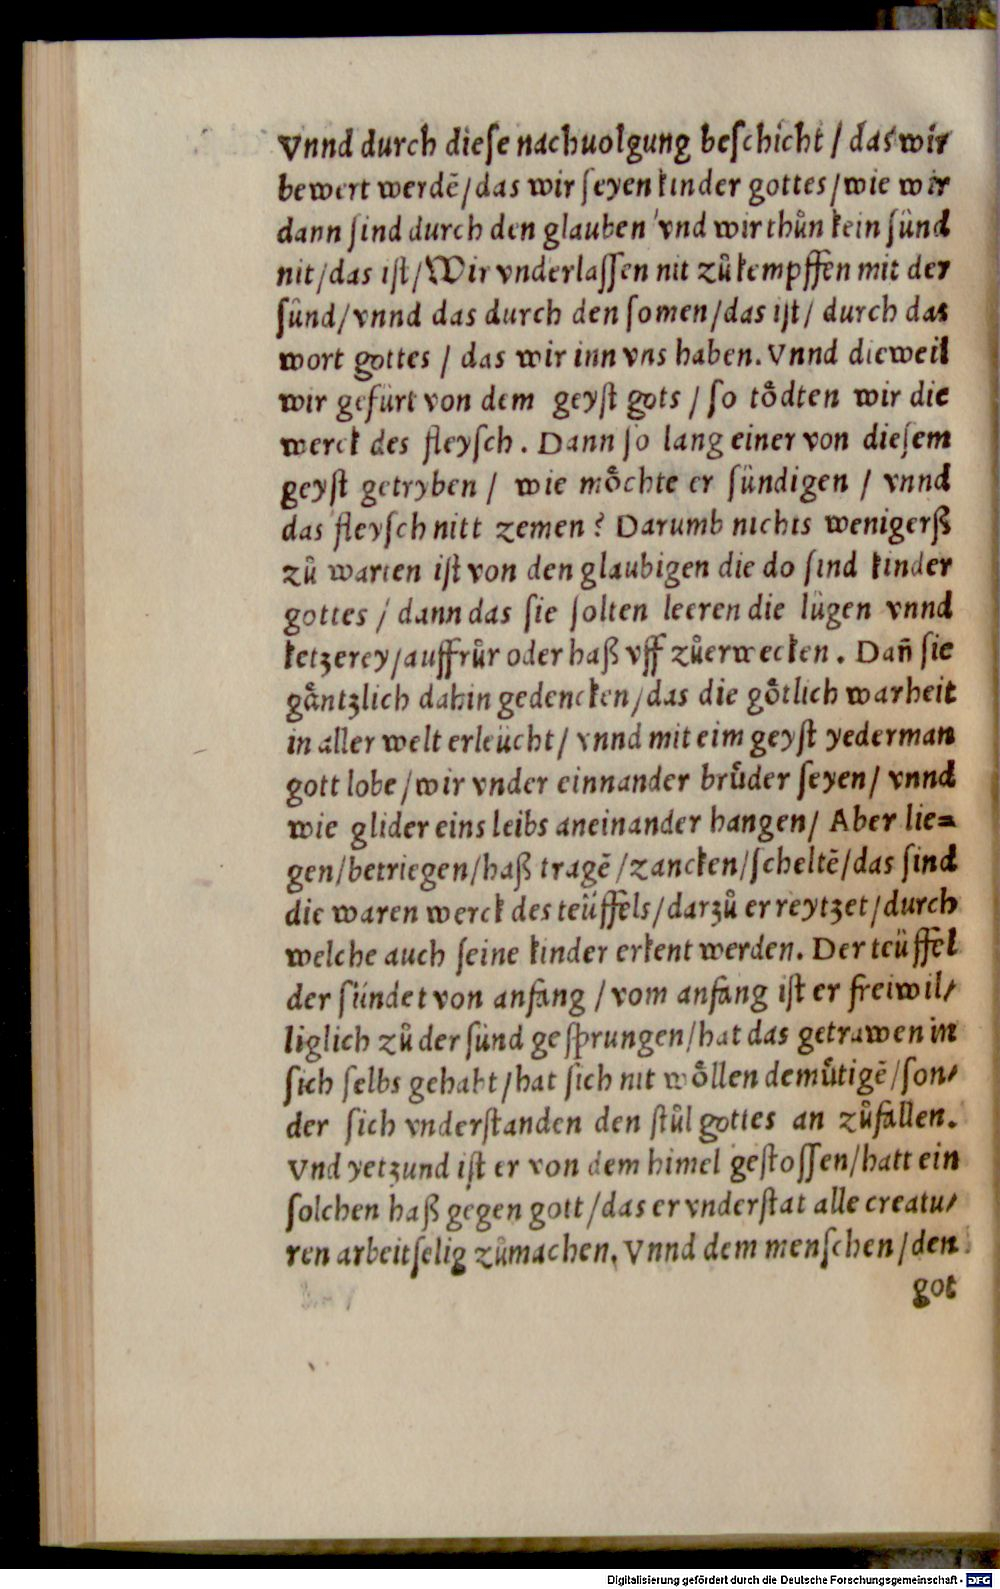 Vnnd durch dieſe nachuolgung beſchicht / das wir
bewert werdē/das wir ſeyen kinder gottes/wie wir
dann ſind durch den glauben vnd wir thůn kein ſünd
nit/das iſt/Wir vnderlaſſen nit zů kempffen mit der
ſünd/vnnd das durch den ſomen/das iſt/ durch das
wort gottes / das wir inn vns haben. Vnnd dieweil
wir gefürt von dem geyſt gots / ſo tödten wir die
werck des fleyſch. Dann ſo lang einer von dieſem
geyſt getryben / wie möchte er ſündigen / vnnd
das fleyſch nitt zemen? Darumb nichts wenigerß
zů warten iſt von den glaubigen die do ſind kinder
gottes / dann das ſie ſolten leeren die lügen vnnd
ketzerey/auffrůr oder haß vff zůerwecken. Dañ ſie
gäntzlich dahin gedencken/das die götlich warheit
in aller welt erleücht/ vnnd mit eim geyſt yederman
gott lobe/wir vnder einnander brüder ſeyen/ vnnd
wie glider eins leibs aneinander hangen/ Aber lie=
gen/betriegen/haß tragē/zancken/ſcheltē/das ſind
die waren werck des teüffels/darzů er reytzet/durch
welche auch ſeine kinder erkent werden. Der teüffel
der ſündet von anfang /vom anfang iſt er freiwil/
liglich zů der ſünd geſprungen/hat das getrawen in
ſich ſelbs gehabt/hat ſich nit wöllen demütigē/ſon/
der ſich vnderſtanden den ſtůl gottes an zůfallen.
Vnd yetzund iſt er von dem himel geſtoſſen/hatt ein
ſolchen haß gegen gott/das er vnderſtat alle creatu/
ren arbeitſelig zůmachen. Vnnd dem menſchen/den
got
Digitalisierung gefördert durch die Deutsche Forschungsgemeinschaft - DFG